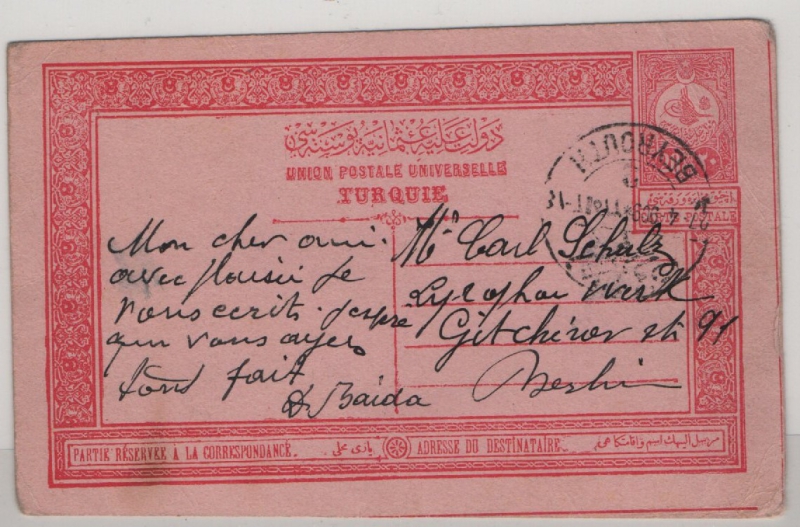 دولت عليه عثمانيه پوسته سى
UNION POSTALE UNIVERSELLE
TURQUIE
CARTE POSTALE
BEYROUTH
Mon cher ami.
avec plaisir Je
vous ecrits. Jespre
que vous ayez
tout fait
D. Baïda
Mr Carl Schulz
Gitchiner str 91
Berlin
PARTIE RÉSERVÉE A LA CORRESPONDANCE
ADRESSE DU DESTINATAIRE